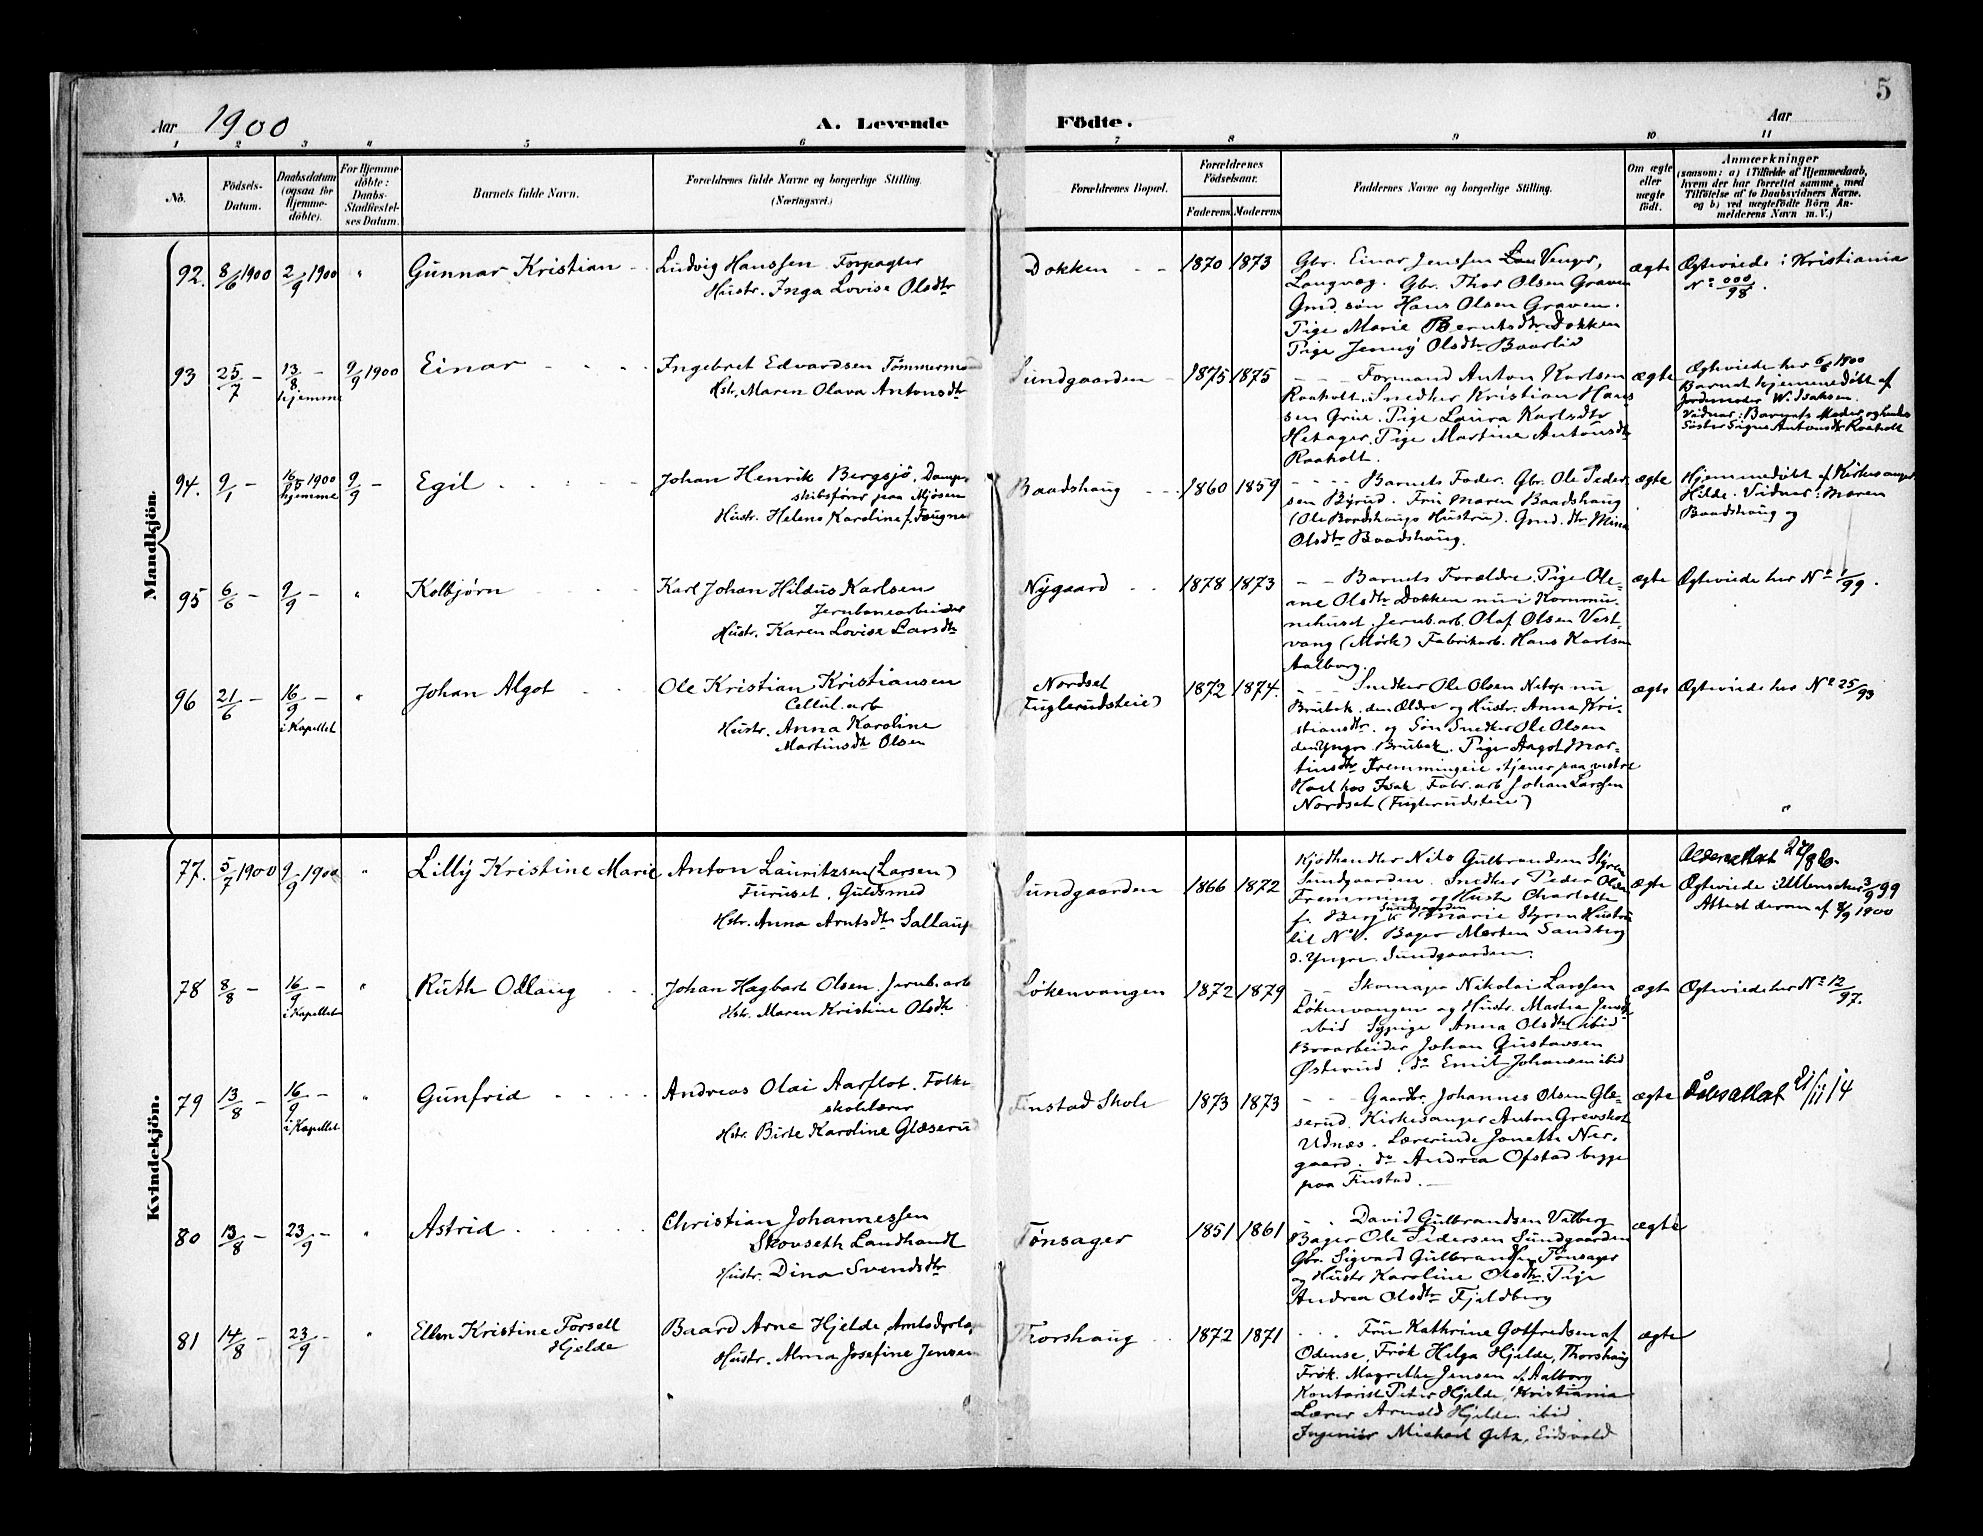 5
Aar 1900
A. Levende Födte.
Aar
1 2 3 4 5 6 7 8 9 10 11
No.
Födsels-
Datum.
Daabsdatum
(ogsaa for
Hjemme-
döbte).
For Hjemme-
döbte:
Daabs-
Stadfæstel-
ses Datum.
Barnets fulde Navn.
Forældrenes fulde Navne og borgerlige Stilling.
(Næringsvei.)
Forældrenes Bopæl.
Forældrenes
Födselsaar.
Faderens Moderens
Faddernes Navne og borgerlige Stilling.
Om ægte
eller
uægte
födt.
Anmærkninger
(saasom: a) i Tilfælde af Hjemmedaab,
hvem der har forrettet samme, med
Tilföielse af to Daabsvidners Navne.
og b) ved uægtefödte Börn An-
melderens Navn m. V.)
Mandkjön.
92. 8/6 1900 2/9 1900 " Gunnar Kristian
Ludvig Hanssen Forpagter
Hustr. Inga Lovise Olsdtr
Dokken 1870 1873
Gbr. Einar Jenssen Venger,
Langvæg. Gbr. Thor Olsen Graven
Gmd. søn Hans Olsen Graven.
Pige Marie Berntsdtr Dokken
Pige Jenny Olsdtr Baarlid
ægte
Ægteviede i Kristiania
No 000/98.
93 25/7 – 13/8 – hjemme 9/9 1900 Einar
Ingebret Edvardsen Tømmermand
Hstr. Maren Olava Antonsdtr
Sundgaarden 1875 1875
Formand Anton Karlsen
Raaholt. Snedker Kristian Hans
sen Grue. Pige Laura Karlsdtr
Hetager. Pige Martine Antonsdtr
Raaholt.
ægte
Ægteviede her 6/6 1900
Barnet hjemmedöbt af
Jordemoder W. Isaksen.
Vidner: Barnets Moder og hendes
Søster Signe Antonsdtr Raaholt
94. 9/1 – 16/5 1900 hjemme 9/9 – Egil
Johan Henrik Bergsjö, Damp-
skibsfører paa Mjösen
Hustr. Helene Karoline f. Faugner
Baadshaug 1860 1859
Barnets Fader. Gbr. Ole Peder
sen Byrud. Fru Maren Baadshaug
(Ole Baadshaugs Hustru). Gmd. dtr Mina
Olsdtr Baadshaug.
ægte
Hjemmedöbt af Kirkesanger
Hilde. Vidner: Maren
Baadshaug og
95 6/6 – 9/9 – " Kolbjørn
Karl Johan Hildus Karlsen
Jernbanearbeider
Hustr. Karen Lovise Larsdtr
Nygaard 1878 1873
Barnets Forældre. Pige Ole-
ane Olsdtr Dokken nu i Kommu-
nehuset. Jernb.arb. Olaf Olsen Vest-
vang (Mörk) Fabrikarb. Hans Karlsen
Aalborg.
ægte
Ægteviede her No 1/99.
96 21/6 – 16/9 – i Kapellet " Johan Algot
Ole Kristian Kristiansen
Cellul. arb
Hustr. Anna Karoline
Martinsdtr Olsen
Nordset
Fuglerudsteie) 1872 1874.
Snedker Ole Olsen Netop nu
Brubek, den Ældre og Hustr. Anna Kri-
stiansdtr. og Søn Snedker Ole Olsen
den Yngre Brubek. Pige Aagot Mar-
tinsdtr Fremmingeie, tjener paa vestre
Hoel hos Isak. Fabr. arb Johan Larssen
Nordset (Fuglerudsteie)
ægte
Ægteviede her No 25/93
Kvindekjön.
77. 5/7 1900 9/9 1900 " Lilly Kristine Marie
Anton Lauritzsen (Larsen)
Furuset, Guldsmed
Hstr. Anna Arntsdtr Sallaup
Sundgaarden 1866 1872
Kjödhandler Nils Gulbrandsen Styren
Sundgaarden. Snedker Peder Olsen
Fremming og Hustr Charlotte
f. Berg. Sundgaarden Marie Styren Hustru
til No 1. Bager Morten Sandberg
d. Yngre. Sundgaarden.
ægte
Aldersattest
Ægteviede i Ullensaker 3/9 99
Attest derom af 8/9 1900
78 8/8 – 16/9 – i Kapellet " Ruth Odlaug
Johan Hagbart Olsen. Jernb. arb
Hstr. Maren Kristine Olsdtr
Løkenvangen 1872 1879
Skomager Nikolai Larssen
Løkenvangen og Hustr. Mathea Jensdtr
ibid Sypige Anna Olsdtr ibid
Braarbeider Johan Gustavsen
Østerud. do Emil Johansen ibid
ægte
Ægteviede her No 12/97.
79 13/8 – 16/9 – i Kapellet " Gunfrid
Andreas Olai Aarflot. Folke
skolelærer
Hstr. Birte Karoline Glæserud
Finstad Skole 1873 1873
Gaardbr. Johannes Olsen Gle-
serud. Kirkesanger Anton Grevskott
Udnæs. Lærerinde Jonette Ner-
gaard. do Andrea Ofstad begge
paa Finstad.
ægte
Dåbsattest 21/11 14
80 13/8 – 23/9 – " Astrid
Christian Johannessen
Skovseth Landhandl
Hustr. Dina Svendsdtr
Tønsager 1851 1861
David Gulbrandsen Valberg
Bager Ole Pedersen Sundgaarden
Gbr. Sigvard Gulbrandsen Tønsager
og Hustr Karoline Olsdtr. Pige
Andrea Olsdtr Fjeldberg
ægte
81 14/8 – 23/9 – " Ellen Kristine Forsell
Hjelde
Baard Arne Hjelde, Amtsdyrlæge
Hustr. Alma Josefine Jensen
Thorshaug 1872 1871
Fru Kathrine Gotfredsen af
Odense, Frøk Helga Hjelde, Thorshaug
Frøk. Magrethe Jensen f. Aalborg
Kontorist Peter Hjelde, Kristiania
Lærer Arnold Hjelde. ibid.
Ingeniør Michael Getz, Eidsvold
ægte